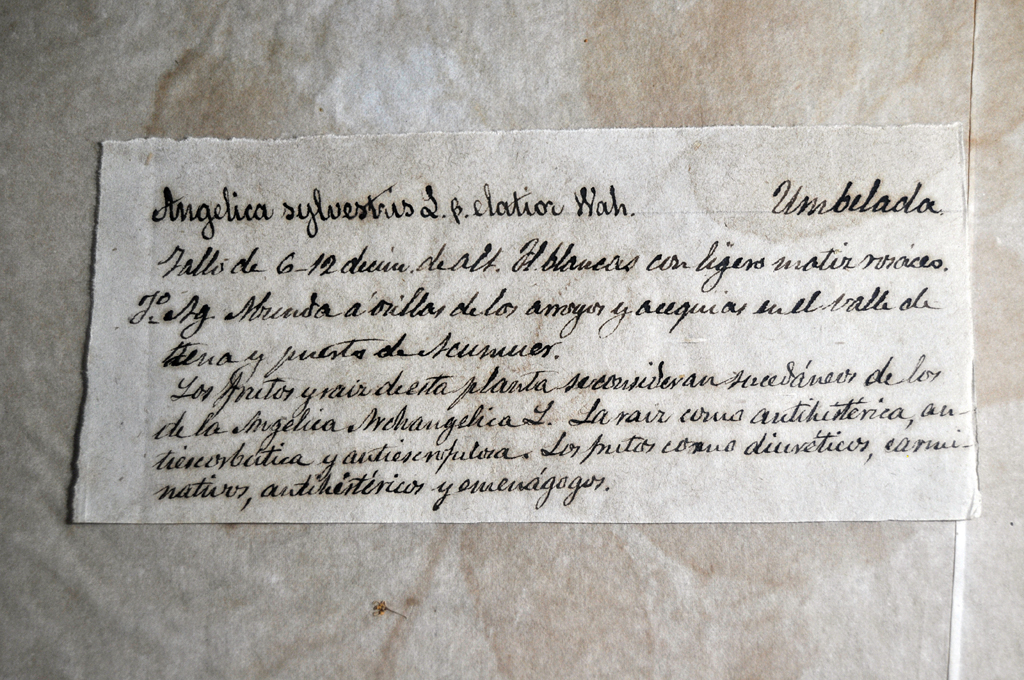 Angelica sylvestris L. β. elatior Wah. Umbelada
Tallo de 6-12 decím. de alt. Fl. blancas con ligero matiz rosáceo.
Jº. Ag. Abunda á orillas de los arroyos y acequias en el valle de
Tena y puerto de Acumuer.
Los frutos y raiz de esta planta se consideran sucedáneos de los
de la Angélica Archangelica L. La raiz como antihistérica, an-
tiescorbútica y antiescrofulosa. Los frutos como diuréticos, carmi-
nativos, antihistéricos y emenágogos.